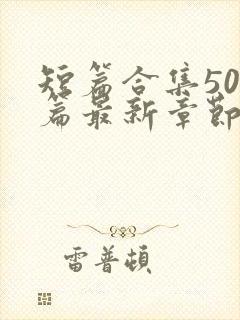 短篇合集50
篇最新章节
雷普顿